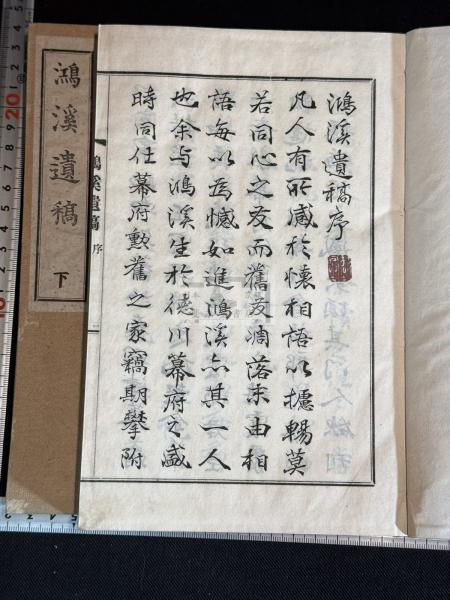 鴻溪遺稿序
凡人有所感於懷相語以攄暢莫
若同心之友而舊友凋落未由相
語每以爲憾如進鴻溪亦其一人
也余与鴻溪生於德川幕府之盛
時同仕幕府勲舊之家竊期攀附
鴻溪遺稿 序
鴻溪遺稿 下